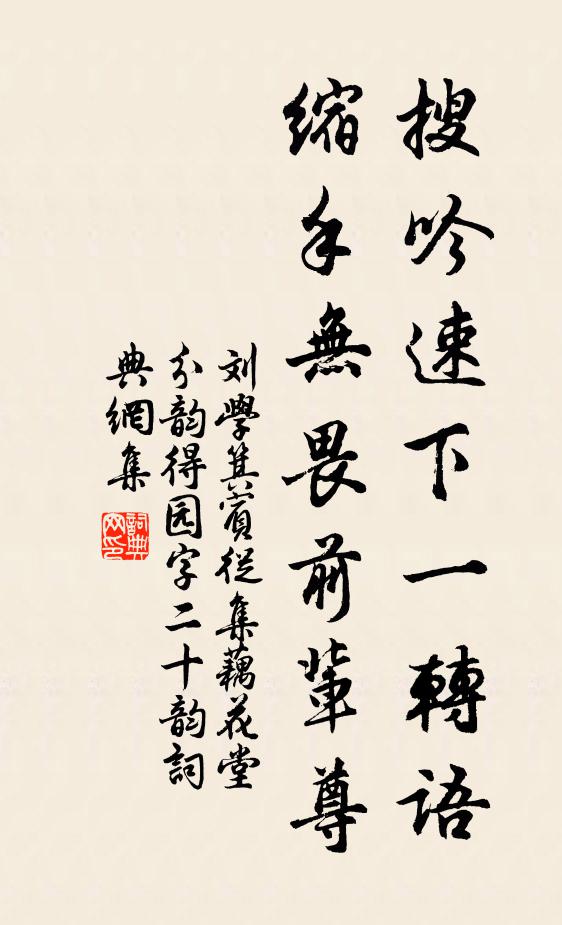 搜吟速下一轉語
縮手無畏前輩尊
刘學箕賓從集藕花堂
分韵得园字二十韵詞
典網集
詞典
网印